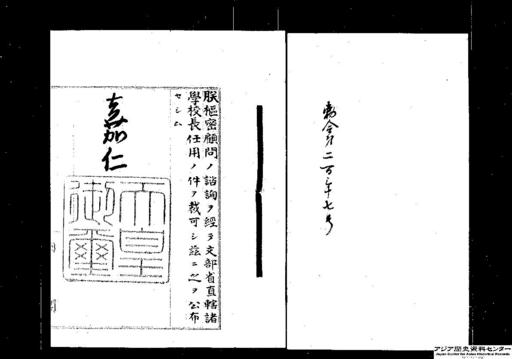 勅令第二百三十七号
朕樞密顧問ノ諮詢ヲ經テ文部省直轄諸
學校長任用ノ件ヲ裁可シ茲ニ之ヲ公布
セシム
嘉仁
天皇
御璽
アジア歴史資料センター
Japan Center for Asian Historical Records